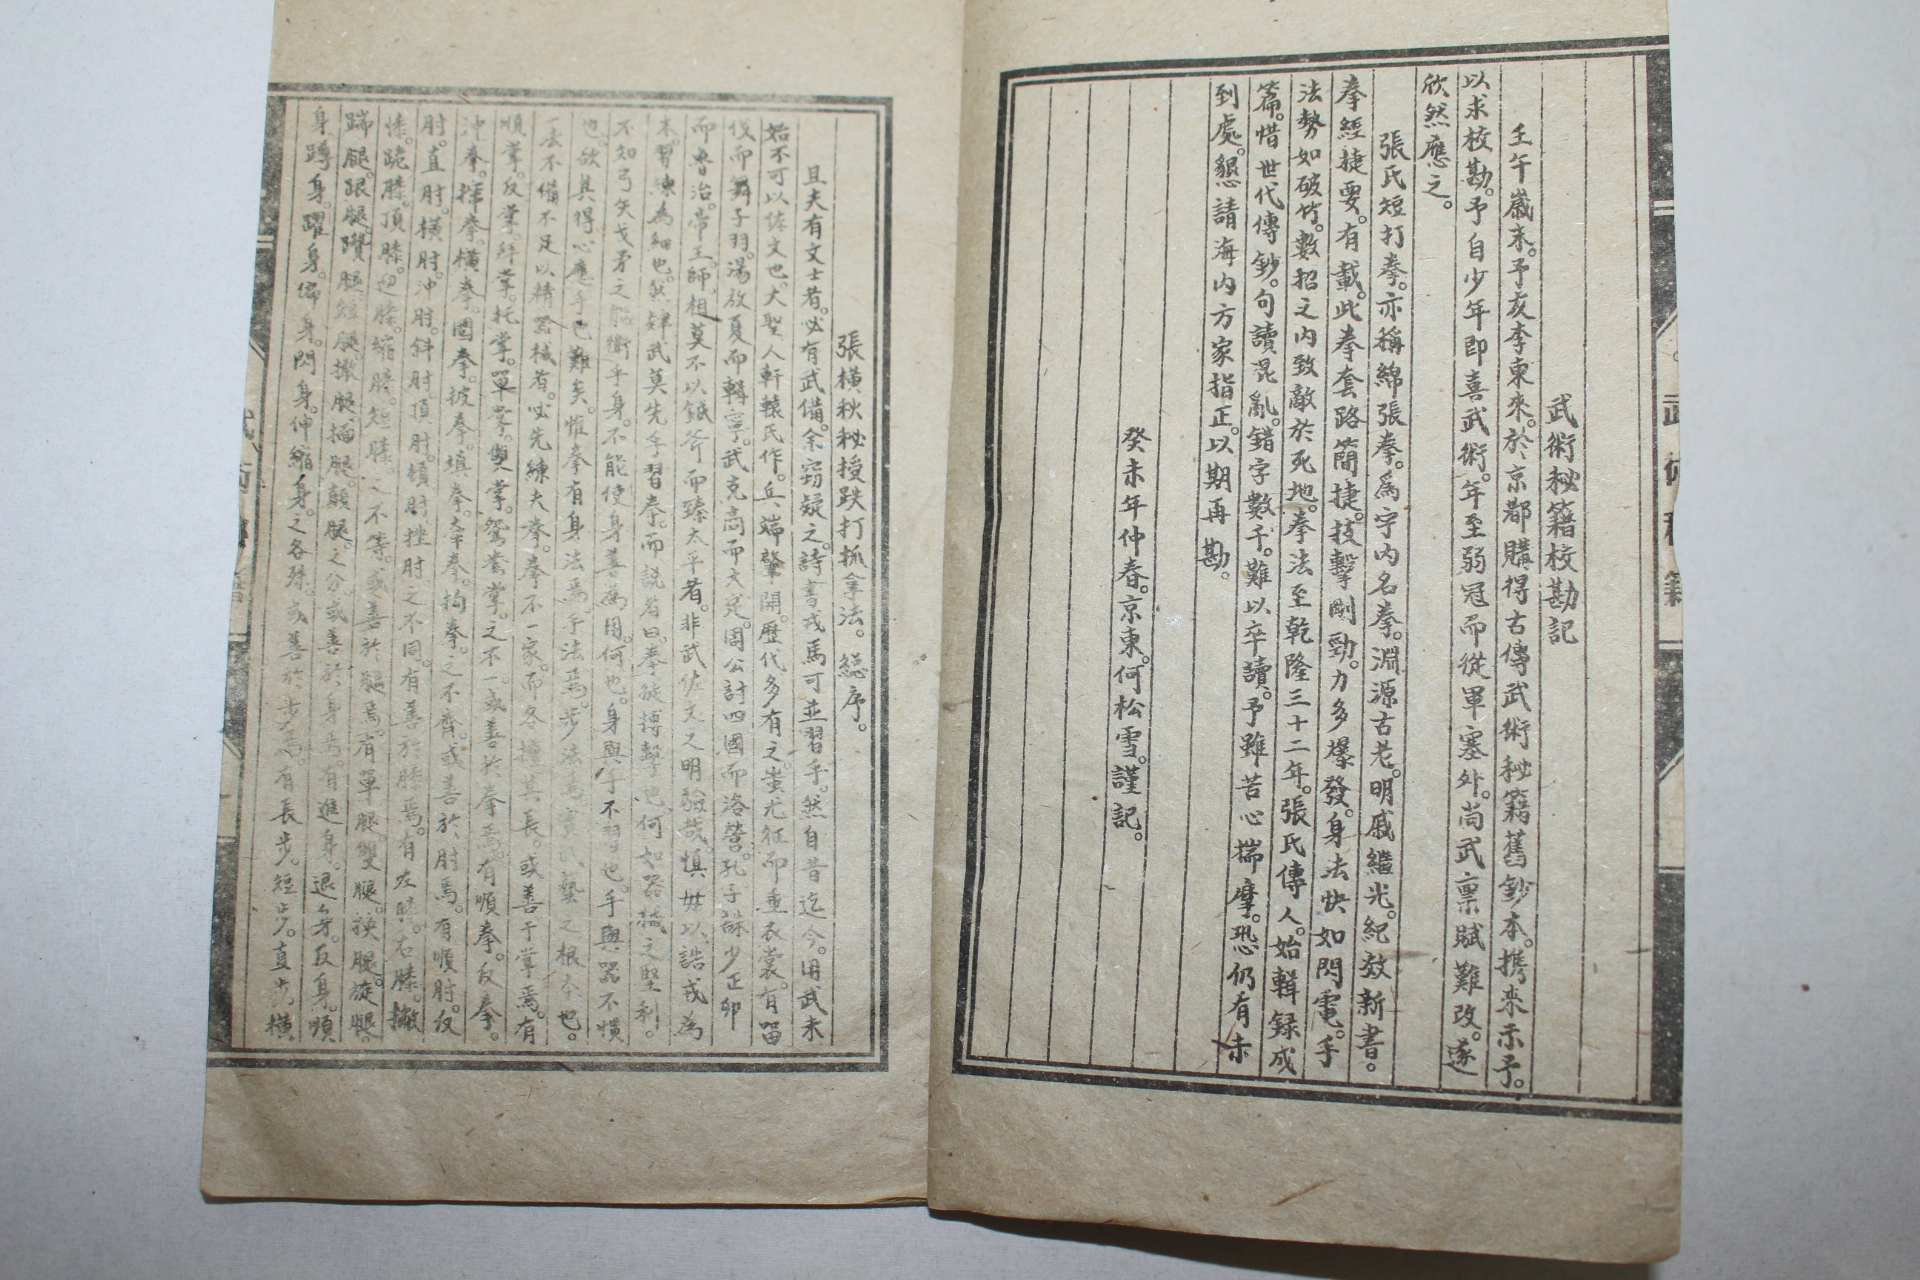 武術秘籍校勘記
壬午歲末。予友李東來。於京都購得古傳武術秘籍舊鈔本。携来示予。
以求校勘。予自少年即喜武術。年至弱冠而從軍塞外。尚武禀賦難改。遂
欣然應之。
張氏短打拳。亦稱綿張拳。為宇内名拳。淵源古老。明戚繼光。紀效新書。
拳經捷要。有載。此拳套路簡捷。技擊剛勁。力多爆發。身法快如閃電。手
法勢如破竹。數招之内致敵於死地。拳法至乾隆三十二年。張氏傳人。始輯録成
篇。惜世代傳鈔。句讀混亂。錯字數千。難以卒讀。予雖苦心揣摩。恐仍有未
到處。懇請海内方家指正。以期再勘。
癸未年仲春。京東。何松雪。謹記。
張橫秋秘授跌打抓拿法。總序。
且夫有文士者。必有武備。余竊疑之。詩書戎馬可並習乎。然自昔迄今。用武未
始不可以佐文也。大聖人軒轅氏作。兵端肇開。歷代多有之。蚩尤征而垂衣裳。有苗
伐而舞干羽。湯放夏而輯寧。武克商而大定。周公討四國而洛營。孔子誅少正卯
而魯治。帝王師相。莫不以鉞斧而臻太平者。非武佐文之明驗哉。慎毋以詰戎為
末。習練為細也。然肄武莫先乎習拳。而說者曰。拳徒搏擊也。何如器械之堅利。
不知弓矢戈矛之能衛乎身。不能使身善為用。何也。身與手不習也。手與器不慣
也。欲其得心應手也難矣。惟拳有身法焉。手法焉。步法焉。實武藝之根本也。
一法不備不足以精器械者。必先練夫拳。拳不一家。而各擅其長。或善于掌焉。有
順掌。反掌。拜掌。托掌。單掌。雙掌。鴛鴦掌。之不一。或善於拳焉。有順拳。反拳。
冲拳。揮拳。橫拳。圈拳。披拳。填拳。牽拳。拘拳。之不齊。或善於肘焉。有順肘。反
肘。直肘。橫肘。冲肘。斜肘。頂肘。頓肘。挫肘。之不同。有善於膝焉。有左膝。右膝。撇
膝。跪膝。頂膝。迎膝。縮膝。短膝。之不等。或善於腿焉。有單腿。雙腿。挾腿。旋腿。
踹腿。跟腿。躦腿。短腿。撒腿。插腿。顛腿。之分。或善於身焉。有進身。退身。反身。順
身。蹲身。躍身。偏身。閃身。伸縮身。之各殊。或善於步焉。有長步。短步。直步。橫